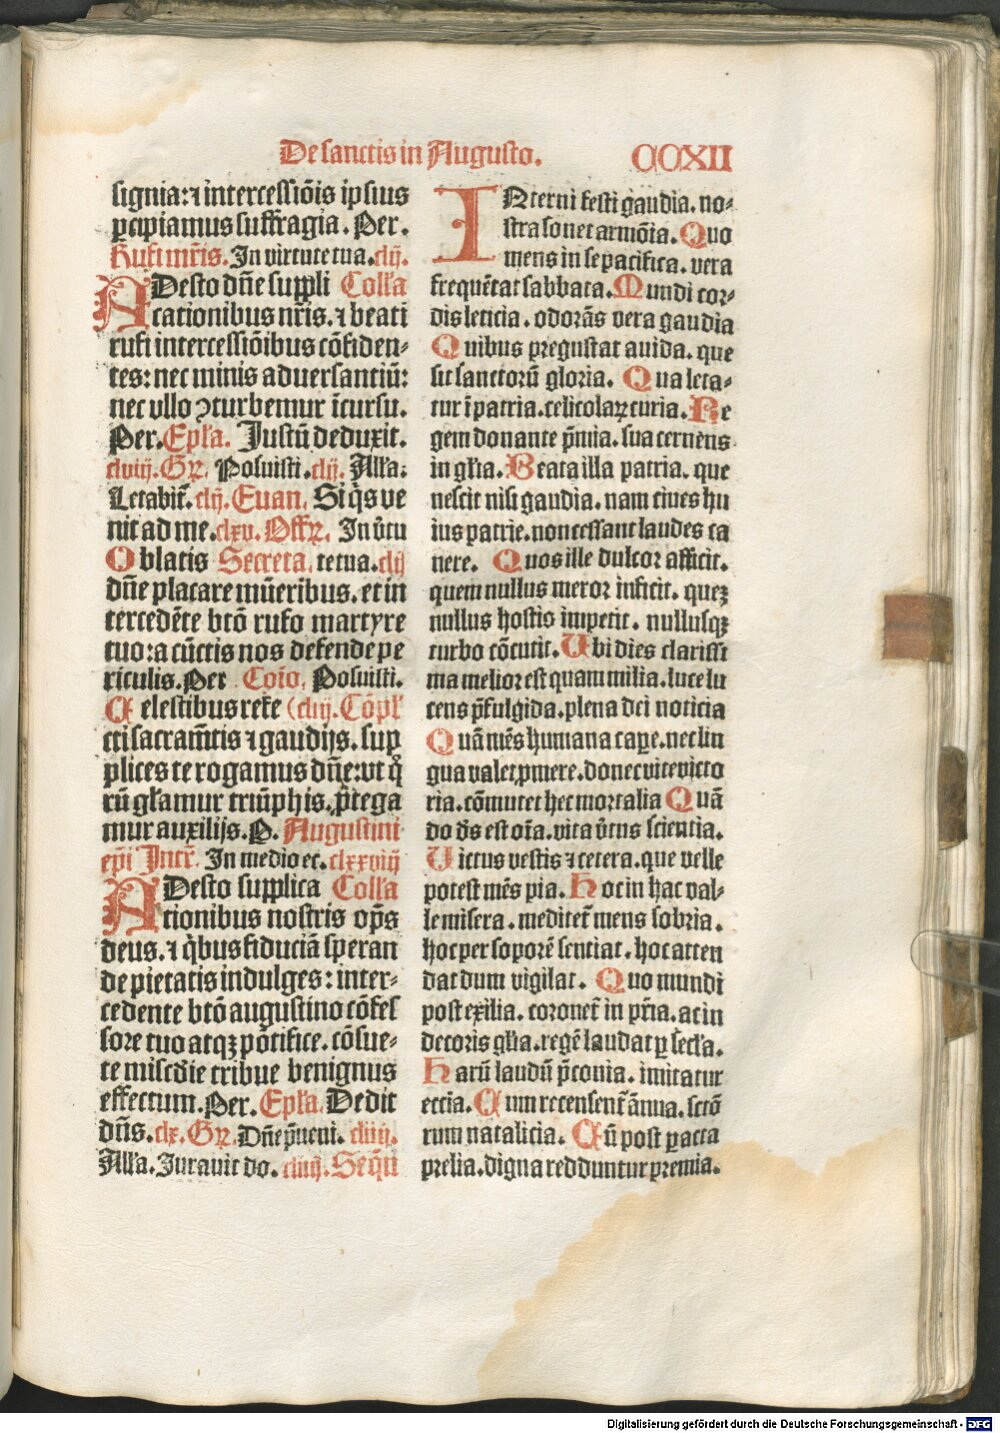 De sanctis in Augusto.
CCXII
signia: ⁊ intercessiõis ipsius
ꝑcipiamus suffragia. Per.
Rufi mr̃is. In virtute tua. clij.
ADesto dñe suppli Collã
cationibus nr̃is. ⁊ beati
rufi intercessiõibus cõfiden-
tes: nec minis aduersantiũ:
nec vllo ꝯturbemur ĩcursu.
Per. Epl̃a. Justũ deduxit.
clviij. Gꝛ. Posuisti. clij. Allã.
Letabit̃. clij. Euan. Si q̃s ve
nit ad me. clxv. Offꝛ. In v̾tu
Oblatis Secreta. te tua. clij
dñe placare mũeribus. et in
tercedẽte btõ rufo martyre
tuo: a cũctis nos defende pe
riculis. Per Coĩo. Posuisti.
Celestibus refe (cliij. Cõpl̃
cti sacram̃tis ⁊ gaudijs. sup
plices te rogamus dñe: vt q̊
rũ gl̃amur triũphis. ꝓtega
mur auxilijs. P. Augustini
ep̃i Intr̃. In medio ec. clxxviij
ADesto supplica Collã
tionibus nostris op̃s
deus. ⁊ q̃bus fiduciã speran
de pietatis indulges: inter-
cedente btõ augustino cõfes
sore tuo atqꝫ põtifice. cõsue-
te misc̃die tribue benignus
effectum. Per. Epl̃a. Dedit
dñs. clx. Gꝛ. Dñe p̃ueni. cliiij.
Allã. Jurauit do. cliiij. Seq̃ũ
INterni festi gaudia. no-
stra sonet armõia. Quo
mens in se pacifica. vera
frequẽtat sabbata. Mundi cor-
dis leticia. odorãs vera gaudia
Quibus pregustat auida. que
sit sanctorũ gloria. Qua leta-
tur ĩ patria. celicolaꝝ curia. Re
gem donante p̃mia. sua cernens
in gl̃ia. Beata illa patria. que
nescit nisi gaudia. nam ciues hu
ius patrie. non cessant laudes ca
nere. Quos ille dulcor afficit.
quem nullus meror inficit. queꝫ
nullus hostis impetit. nullusqꝫ
turbo cõcutit. Ubi dies clarissi
ma melior est quam milia. luce lu
cens p̃fulgida. plena dei noticia
Quã mẽs humana capere. nec lin
gua valet ꝓmere. donec vite victo
ria. cõmutet hec mortalia Quã
do d̃s est oĩa. vita v̾tus scientia.
Victus vestis ⁊ cetera. que velle
potest mẽs pia. Hoc in hac val-
le misera. meditet̃ mens sobria.
hoc per soporẽ sentiat. hoc atten
dat dum vigilat. Quo mundi
post exilia. coronet̃ in pr̃ia. ac in
decoris gl̃ia. regẽ laudat ꝑ secl̃a.
Harũ laudũ p̃conia. imitatur
ecc̃ia. Cum recensent̃ ãnua. sctõ
rum natalicia. Cũ post pacta
prelia. digna redduntur premia.
Digitalisierung gefördert durch die Deutsche Forschungsgemeinschaft - DFG